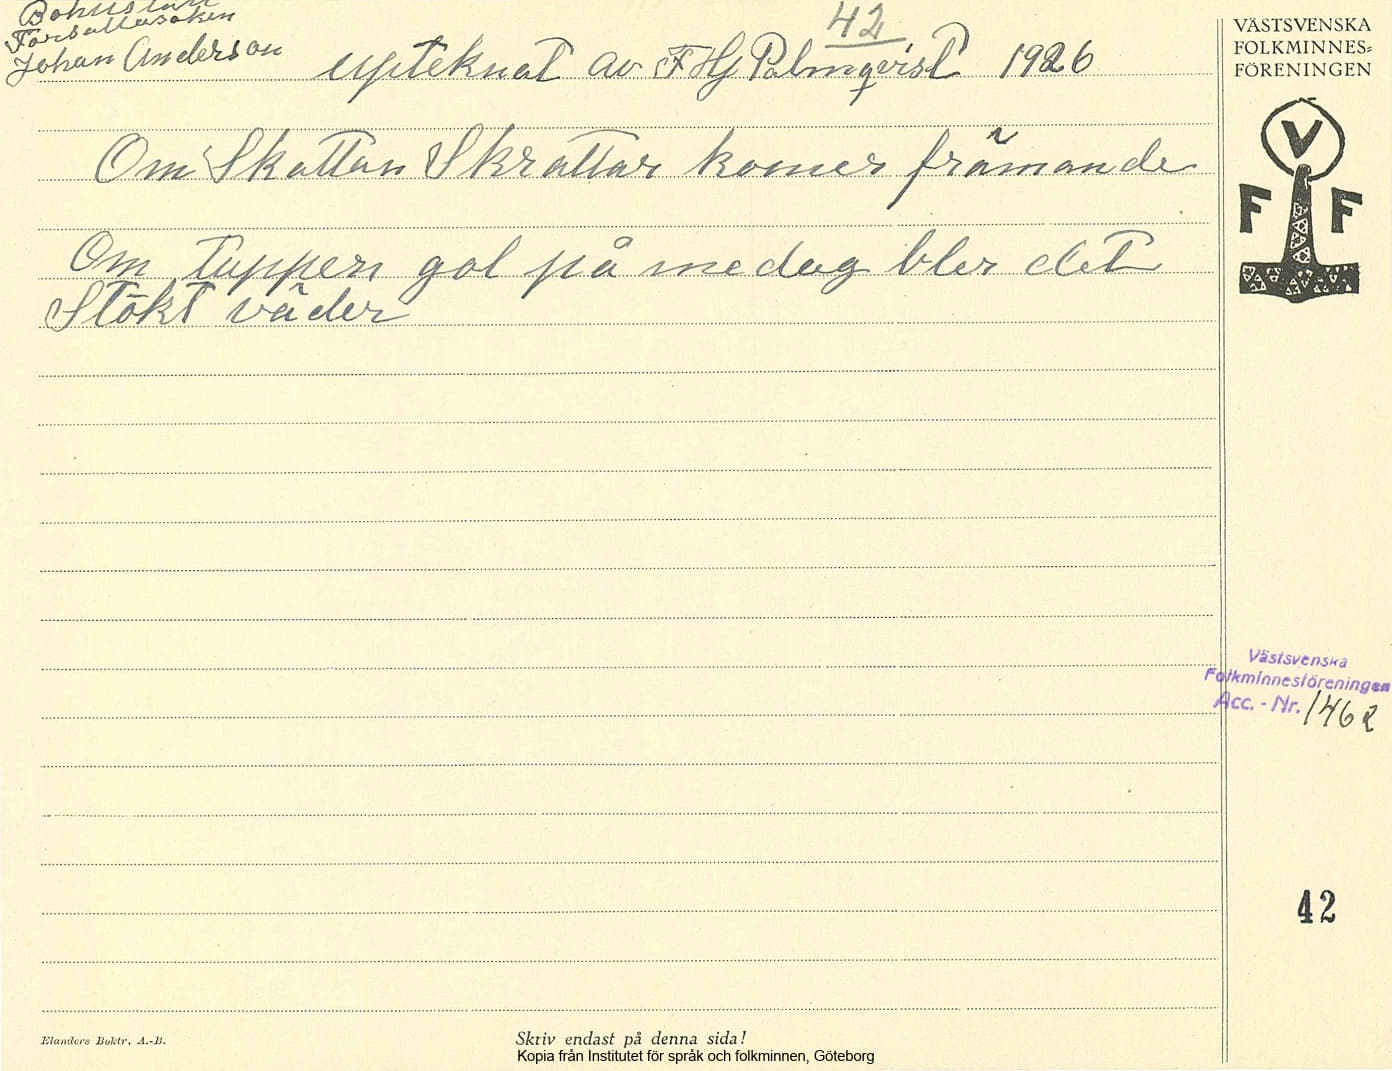 42
Bohuslän
Forsellasoken
Johan Anderson
upteknat av F Hj Palmqvist 1926
Om Skattan Skrattar komer främande
Om tuppen gol på medag bler det
Stökt väder
VÄSTSVENSKA
FOLKMINNES-
FÖRENINGEN
V
F F
Västsvenska
Folkminnesföreningen
Acc. - Nr. 1462
42
Elanders Boktr. A.-B.
Skriv endast på denna sida!
Kopia från Institutet för språk och folkminnen, Göteborg